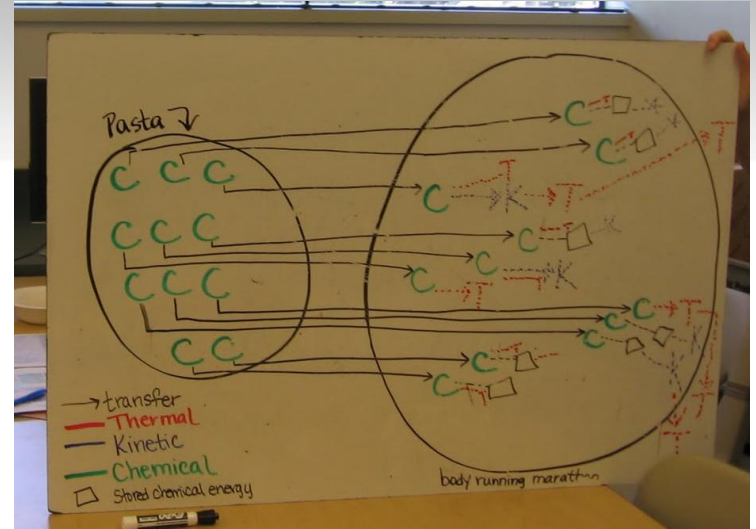 Pasta
C C C
C C C
C C C
C C
C T
C T
C T K T T
C T K
C
C T T K
C T
C
C K
C T
C T
T
T
transfer
Thermal
Kinetic
Chemical
Stored chemical energy
body running marathon